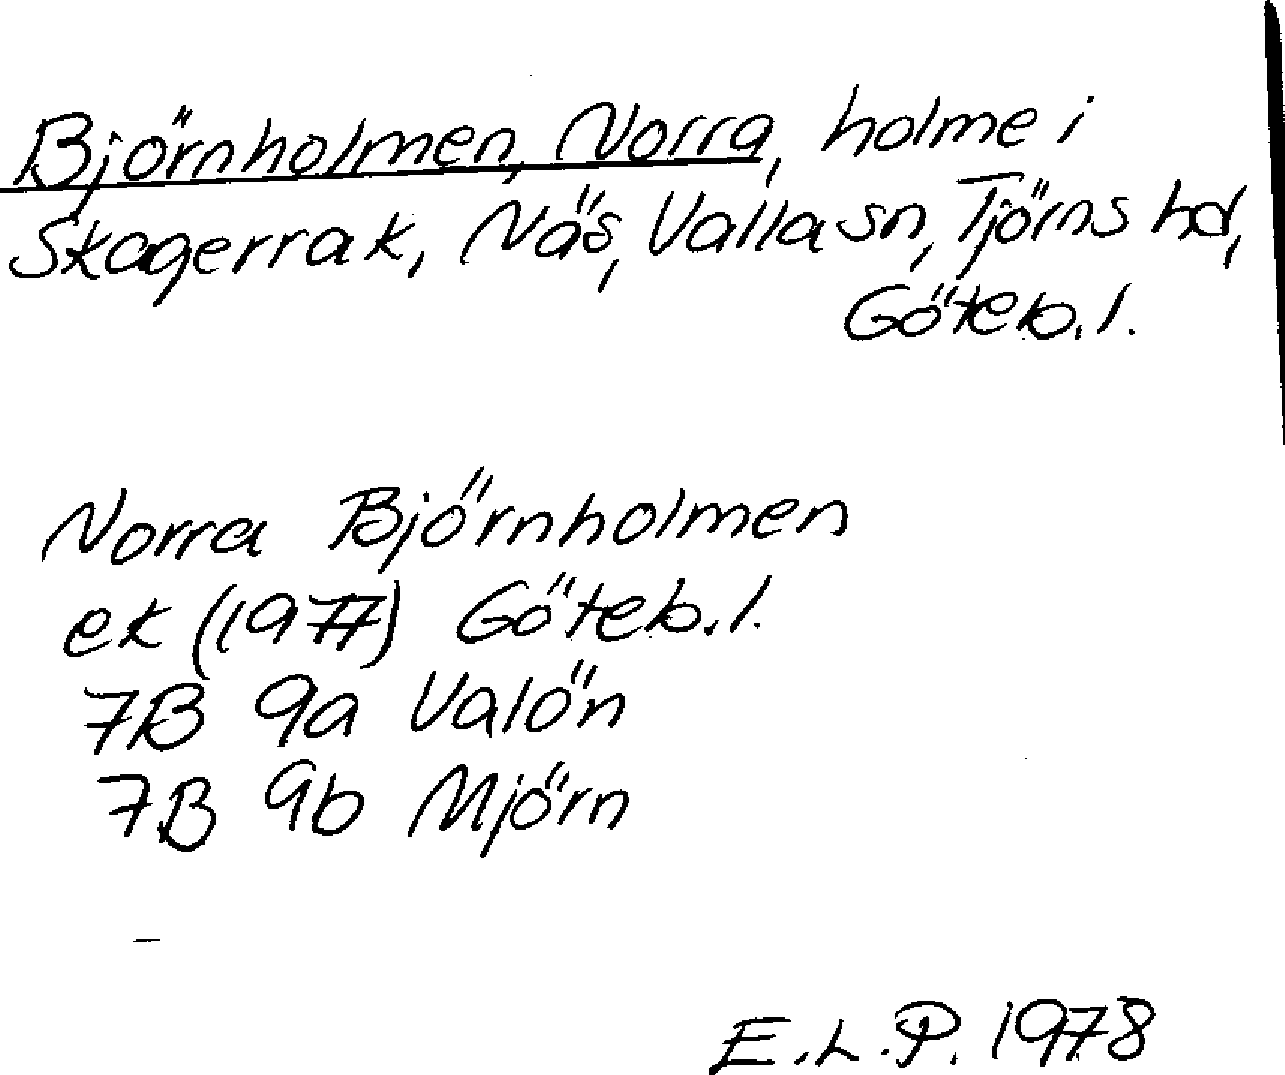 Björnholmen, Norra, holme i
Skagerrak, Näs, Valla sn, Tjörns hd,
Göteb. l.
Norra Björnholmen
ek (1977) Göteb. l.
7B 9a Valön
7B 9b Mjörn
–
E.L.P. 1978